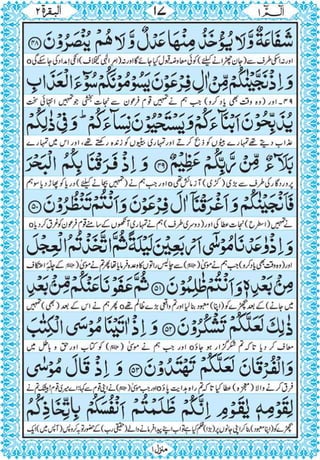 الٓمّٓ ١ ١٧ البقرة ٢
شَفَاعَةٌ وَّلَا يُؤْخَذُ مِنْهَا عَدْلٌ وَّلَا هُمْ يُنْصَرُوْنَ ﴿۴۸﴾
اور نہ اسکی طرف سے (جان) چھڑانے کیلئے کوئی معاوضہ قبول کیا جائے گا اور نہ (امرِ الٰہی کے خلاف) انکی امداد کی جاسکے گی
وَاِذْ نَجَّيْنٰكُمْ مِّنْ اٰلِ فِرْعَوْنَ يَسُوْمُوْنَكُمْ سُوْٓءَ الْعَذَابِ
۴۹۔ اور (وہ وقت بھی یاد کرو) جب ہم نے تمہیں قوم فرعون سے نجات بخشی جو تمہیں انتہائی سخت
يُذَبِّحُوْنَ اَبْنَآءَكُمْ وَيَسْتَحْيُوْنَ نِسَآءَكُمْ ؕ وَفِيْ ذٰلِكُمْ
عذاب دیتے تھے تمہارے بیٹوں کو ذبح کرتے اور تمہاری بیٹیوں کو زندہ رکھتے تھے، اور اس میں تمہارے
بَلَآءٌ مِّنْ رَّبِّكُمْ عَظِيْمٌ ﴿۴۹﴾ وَاِذْ فَرَقْنَا بِكُمُ الْبَحْرَ
پروردگار کی طرف سے بڑی (کڑی) آزمائش تھی اور جب ہم نے (تمہیں بچانے کیلئے) دریا کو پھاڑ دیا سو ہم
فَاَنْجَيْنٰكُمْ وَاَغْرَقْنَآ اٰلَ فِرْعَوْنَ وَاَنْتُمْ تَنْظُرُوْنَ ﴿۵۰﴾
نے تمہیں (اسطرح) نجات عطا کی اور (دوسری طرف) ہم نے تمہاری آنکھوں کے سامنے قومِ فرعون کو غرق کر دیا
وَاِذْ وٰعَدْنَا مُوْسٰٓى اَرْبَعِيْنَ لَيْلَةً ثُمَّ اتَّخَذْتُمُ الْعِجْلَ
اور (وہ وقت بھی یاد کرو) جب ہم نے موسیٰ سے چالیس راتوں کا وعدہ فرمایا تھا پھر تم نے موسیٰ کے چلّہ اعتکاف
مِنْۢ بَعْدِهٖ وَاَنْتُمْ ظٰلِمُوْنَ ﴿۵۱﴾ ثُمَّ عَفَوْنَا عَنْكُمْ مِّنْۢ بَعْدِ
میں جانے کے بعد بچھڑے کو (اپنا) معبود بنا لیا اور تم واقعی بڑے ظالم تھے پھر ہم نے اس کے بعد (بھی) تمہیں
ذٰلِكَ لَعَلَّكُمْ تَشْكُرُوْنَ ﴿۵۲﴾ وَاِذْ اٰتَيْنَا مُوْسَى الْكِتٰبَ
معاف کر دیا تاکہ تم شکرگزار ہو جاؤ اور جب ہم نے موسیٰ کو کتاب اور حق و باطل میں
وَالْفُرْقَانَ لَعَلَّكُمْ تَهْتَدُوْنَ ﴿۵۳﴾ وَاِذْ قَالَ مُوْسٰى
فرق کرنے والا (معجزہ) عطا کیا تاکہ تم راہِ ہدایت پاؤ اور جب موسیٰ نے اپنی قوم سے کہا اے میری قوم
لِقَوْمِهٖ يٰقَوْمِ اِنَّكُمْ ظَلَمْتُمْ اَنْفُسَكُمْ بِاتِّخَاذِكُمُ
منزل ١